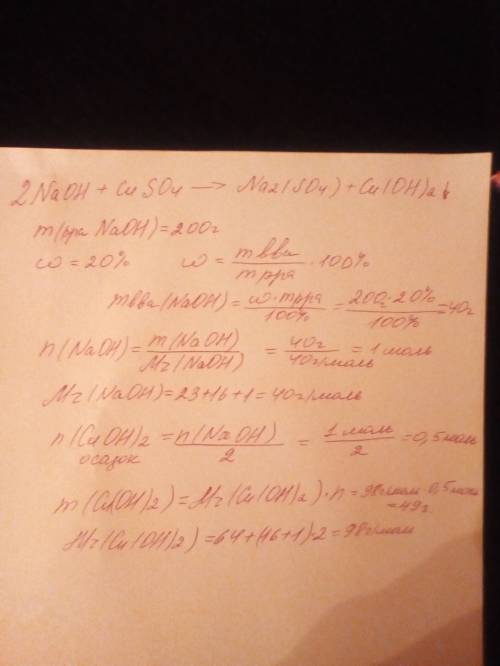 2NaOH + CuSO4 → Na2(SO4) + Cu(OH)2↓
m(рра NaOH) = 200г
ω = 20% ω = mвва/mрра · 100%
mвва(NaOH) = ω·mрра/100% = 200г·20%/100% = 40г
n(NaOH) = m(NaOH)/Mr(NaOH) = 40г/40г/моль = 1моль
Mr(NaOH) = 23+16+1 = 40г/моль
n(CuOH)2 = n(NaOH)/2 = 1моль/2 = 0,5моль
осадок
m(Cu(OH)2) = Mr(Cu(OH)2)·n = 98г/моль·0,5моль
= 49г
Mr(Cu(OH)2) = 64+(16+1)·2 = 98г/моль